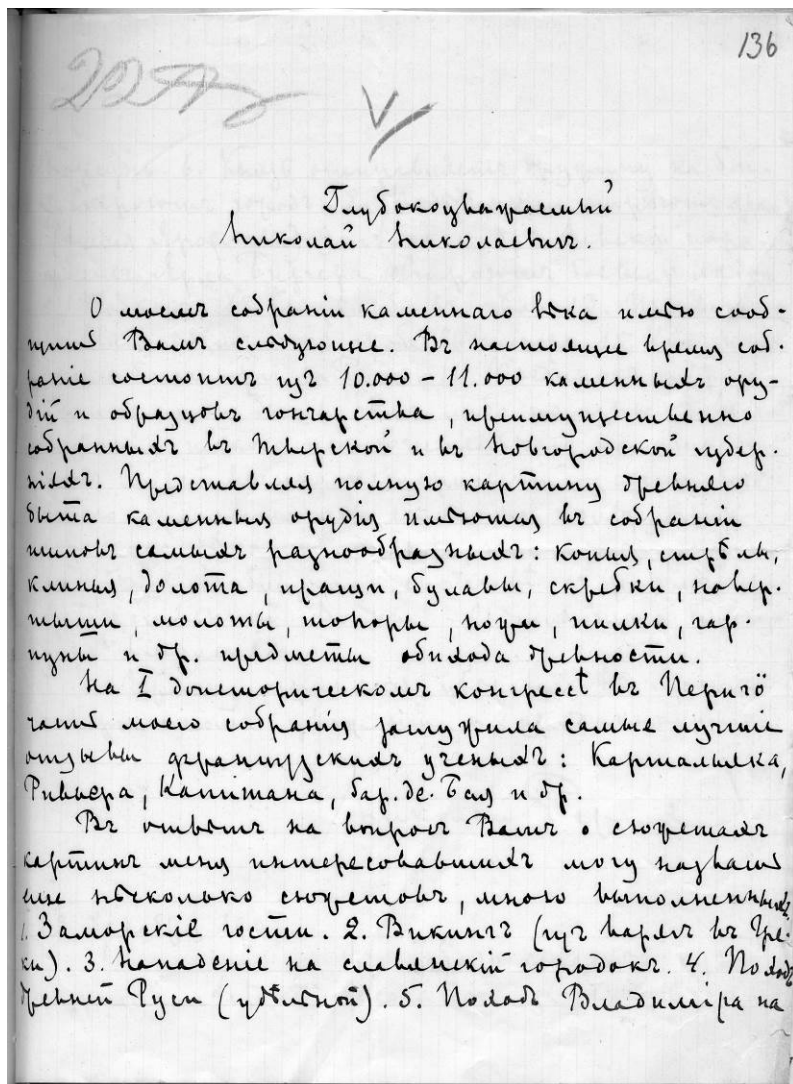 136
Глубокоуважаемый
Николай Николаевичъ.
О моемъ собраніи каменнаго вѣка имѣю сооб-
щить Вамъ слѣдующие. Въ настоящее время соб-
раніе состоитъ изъ 10.000 – 11.000 каменныхъ ору-
дій и образцовъ гончарства, преимущественно
собранныхъ въ Тверской и въ Новгородской губер-
ніяхъ. Представляя полную картину древняго
быта каменныя орудія имѣются въ собраніи
типовъ самыхъ разнообразныхъ: копья, стрѣлы,
клинья, долота, пращи, булавы, скребки, навер-
тыши, молоты, топоры, ножи, пилки, гар-
пуны и др. предметы обихода древности.
На I доисторическомъ конгрессѣ въ Перигё
часть моего собранія заслужила самые лучшіе
отзывы французскихъ ученыхъ: Картальяка,
Ривьера, Капитана, бар. де-Бая и др.
Въ отвѣтъ на вопросъ Вашъ о сюжетахъ
картинъ меня интересовавшихъ могу назвать
еще нѣсколько сюжетовъ, мною выполненныхъ
1. Заморскіе гости. 2. Викингъ (изъ варягъ въ Гре-
ки). 3. Нападеніе на славянскій городокъ. 4. Походъ
древней Руси (удѣльной). 5. Походъ Владиміра на